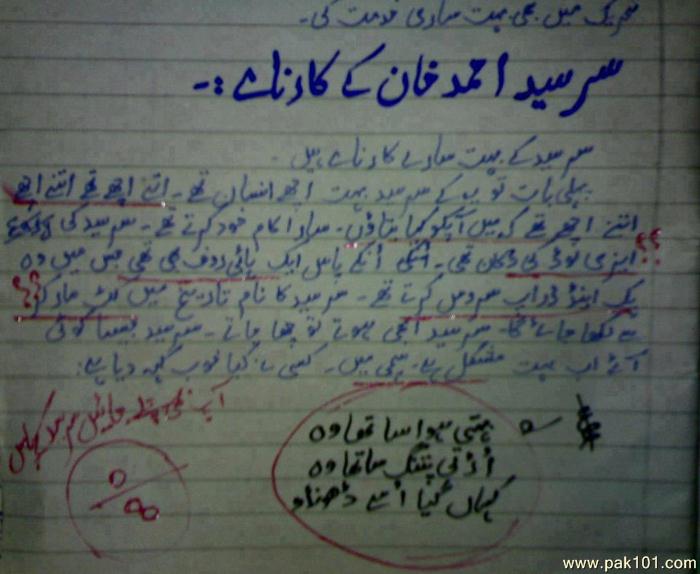 تحریک میں بھی بہت ساری خدمت کی۔
سر سید احمد خان کے کارنامے :-
سر سید کے بہت سارے کارنامے ہیں۔
پہلی بات تو یہ کے سر سید بہت اچھے انسان تھے۔ اتنے اچھے تھے اتنے اچھے
اتنے اچھے تھے کہ میں آپکو کیا بتاؤں۔ سارا کام خود کرتے تھے۔ سر سید کی
ایزی لوڈ کی دکان تھی۔ انکے پاس ایک ہائی روف بھی تھی جس میں وہ
پک اینڈ ڈراپ سروس کرتے تھے۔ سر سید کا نام تاریخ میں مار کر
سے لکھا جائے گا۔ سر سید ابھی ہوتے تو چھا جاتے۔ سر سید جیسا کوئی
آئے اب بہت مشکل ہے۔ سہی میں۔ کسی نے کیا خوب کہہ دیا ہے:
بہتی ہوا سا تھا وہ
اڑتی پتنگ سا تھا وہ
کہاں گیا اسے ڈھونڈو
؟؟
؟؟
0
00
www.pak101.com